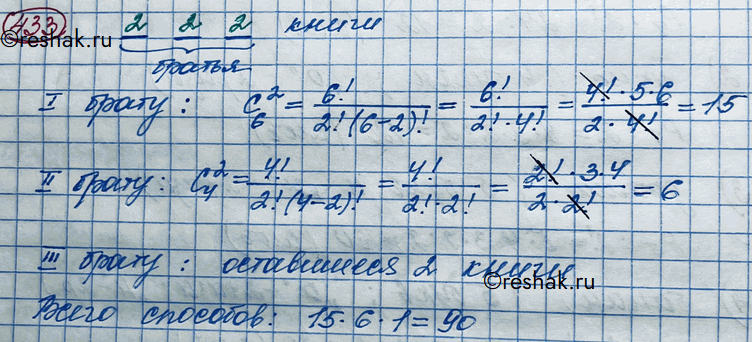 433 2 2 2 книги
братья
©reshak.ru
I брату: C₆² = 6!/(2!(6-2)!) = 6!/(2!·4!) = (4!·5·6)/(2·4!) = 15
II брату: C₄² = 4!/(2!(4-2)!) = 4!/(2!·2!) = (2!·3·4)/(2·2!) = 6
III брату: оставшиеся 2 книги
©reshak.ru
Всего способов: 15·6·1=90